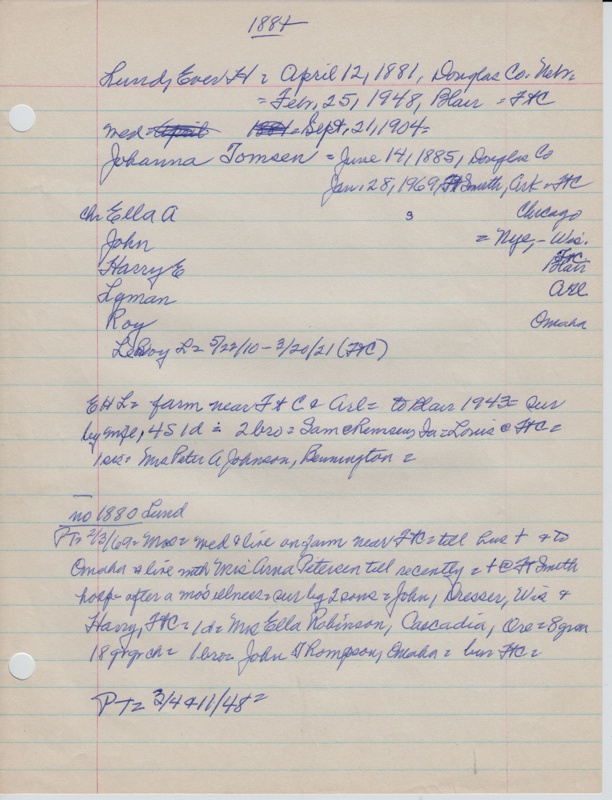 1884
Lund, Ever H = April 12, 1881, Douglas Co. Nebr.
= Febr. 25, 1948, Blair = FtC
med = April 1881 = Sept. 21, 1904 =
Johanna Tomsen = June 14, 1885, Douglas Co
Jan. 28, 1969, Ft Smith, Ark = FtC
ch Ella A 9 Chicago
John = Nye, - Wis.
Harry E FtC Blair
Lyman Arl
Roy Omaha
LeRoy L = 5/22/10 - 3/20/21 (FtC)
EHL = farm near FtC & Arl = to Blair 1943 = sur
by wife, 4S 1d = 2 bro = Sam @ Remsen, Ia = Louis @ FtC =
1 sis = Mrs Peter A Johnson, Bennington =
no 1880 Lund
PT = 2/3/69 = Mrs = med & live on farm near FtC = till hus + & to
Omaha & live with Mrs Arna Petersen till recently = + @ Ft Smith
hosp = after a mos illness = sur by 2 sons = John, Dresser, Wis &
Harry, FtC = 1d = Mrs Ella Robinson, Cascadia, Ore = 8 gran
18 grgrch = 1 bro = John Thompson, Omaha = bur FtC =
PT = 3/4 & 11/48 =